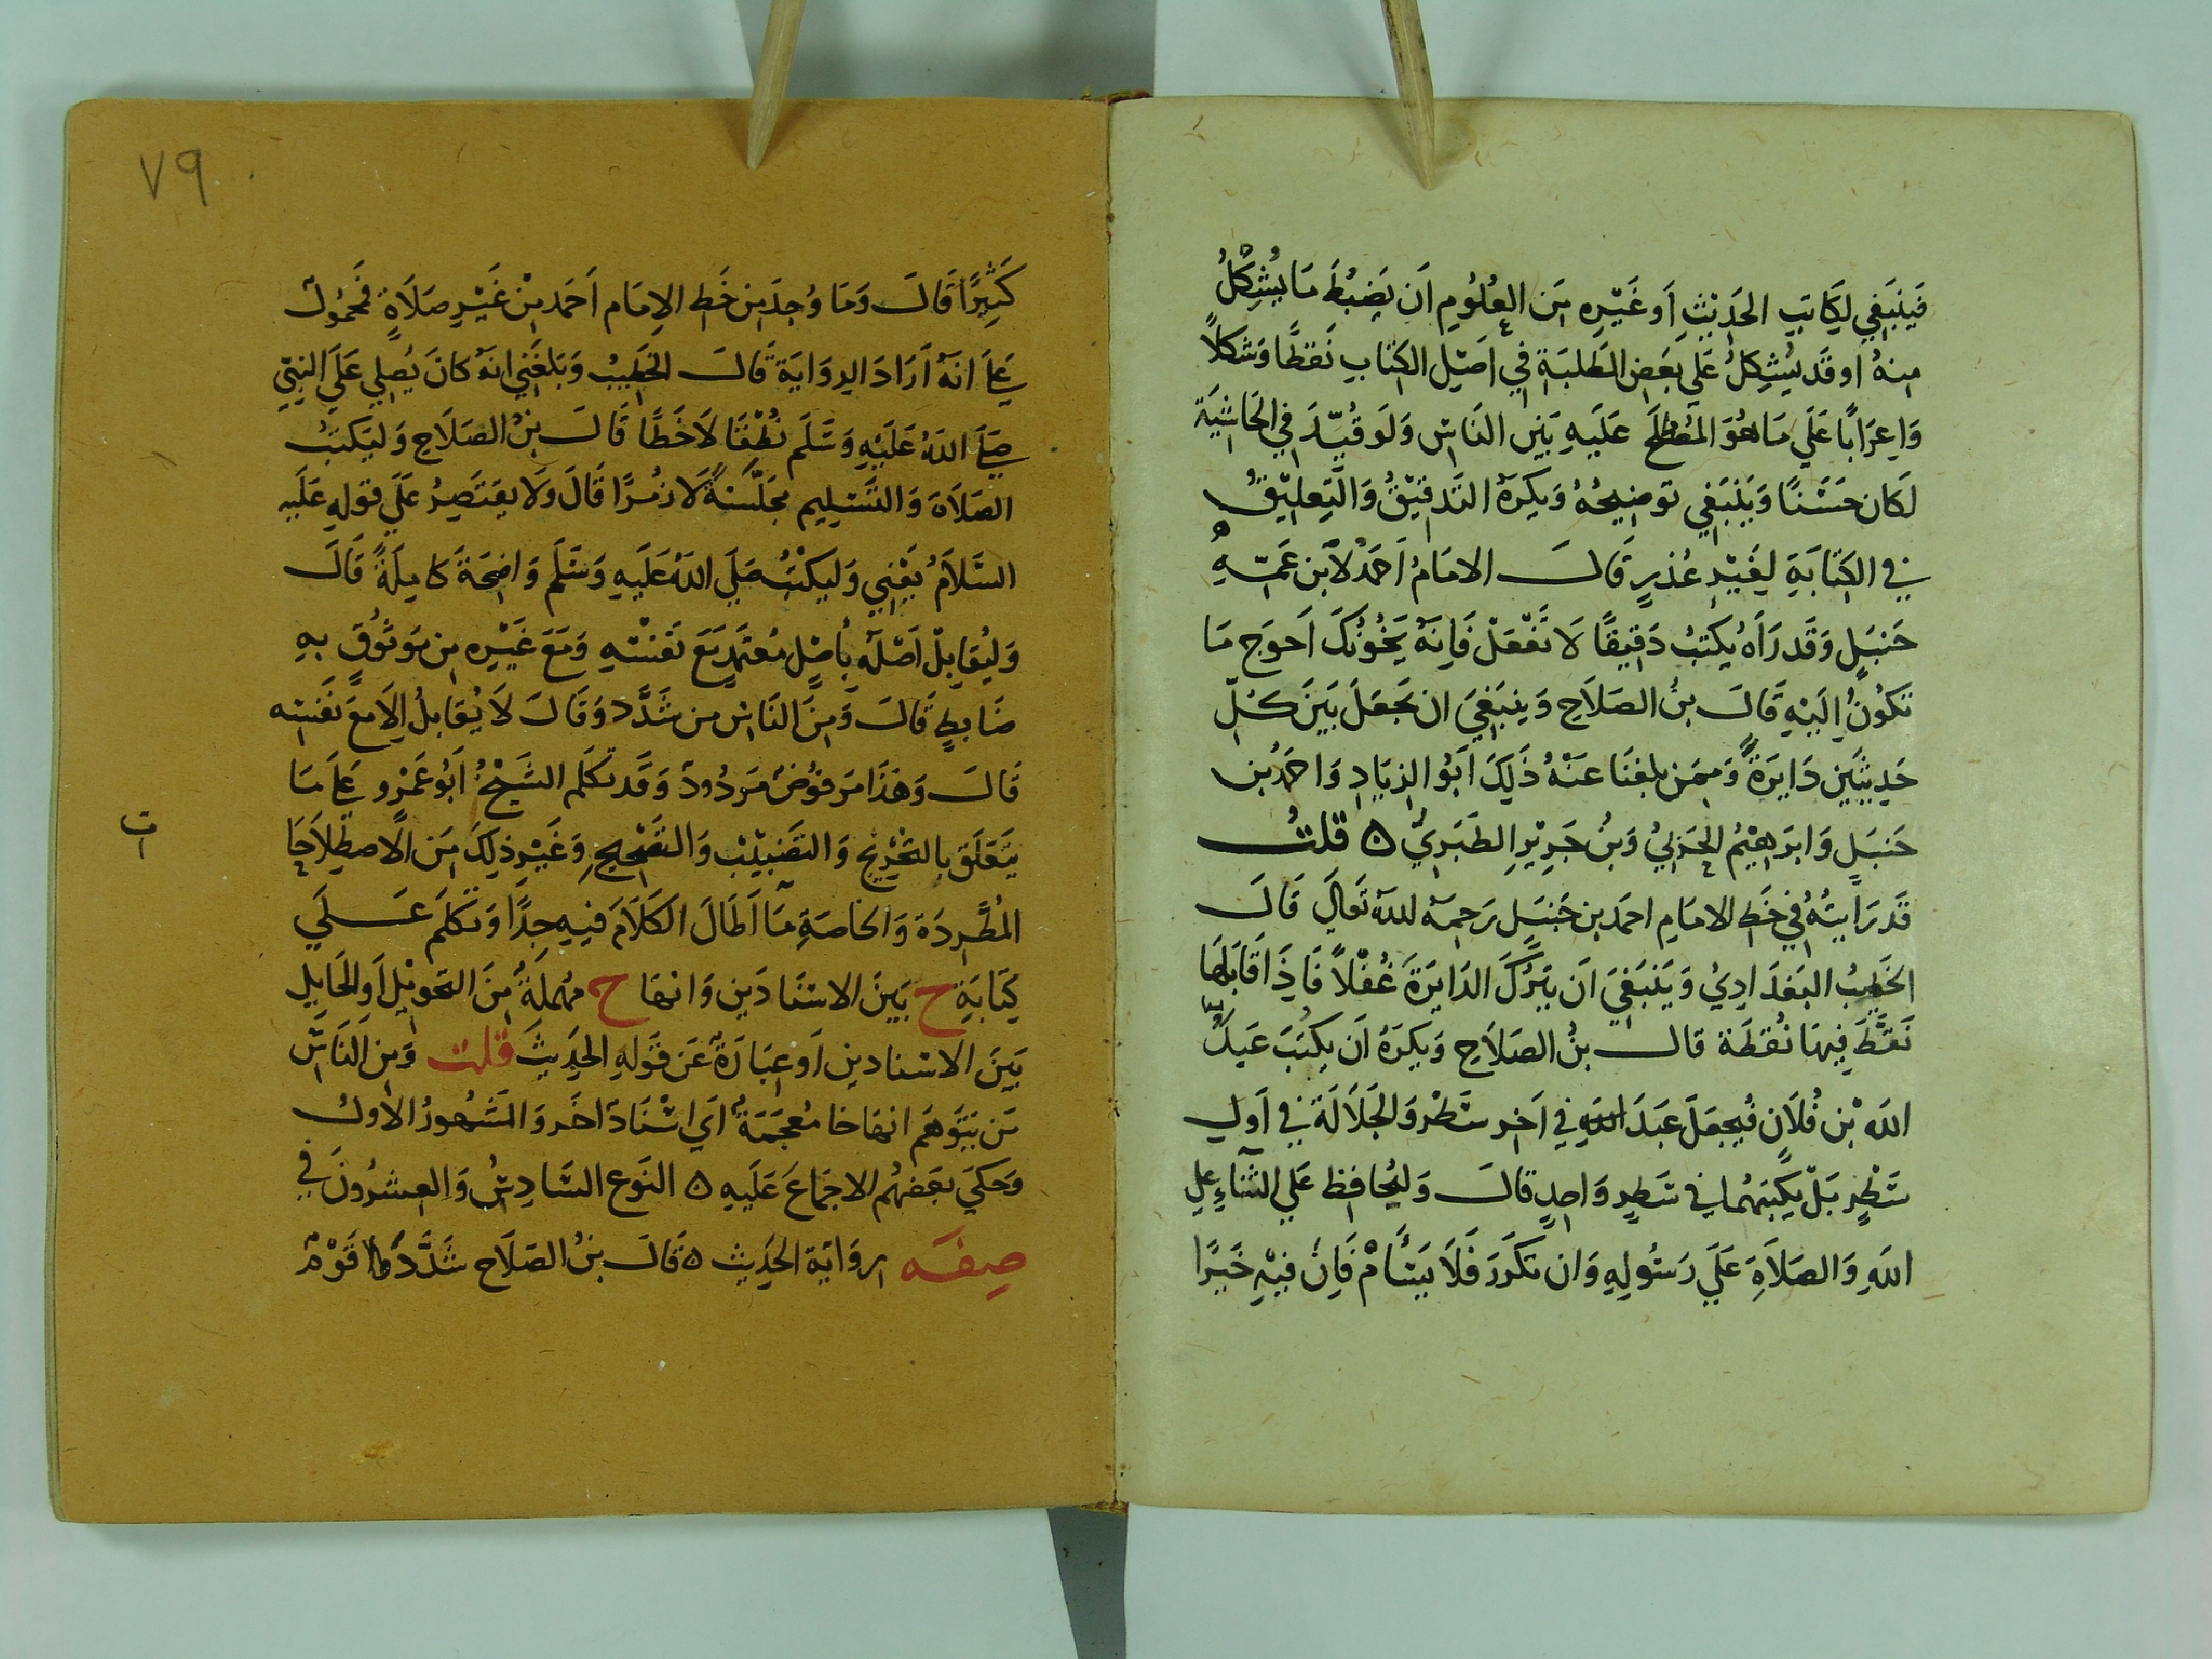 فَينبَغي لِكَاتِبِ الحَدِيْثِ اَو غَيْرِه مِن العُلُومِ اَن يَضبُطَ مَا يُشكِلُ
مِنهُ او قَد يُشكِلُ عَلَى بَعَضِ الطَلبَةِ في اَصَيلِ الكتابِ نَقطًا وَشَكلاً
وَاِعرَابًا عَلَي مَا هُوَ المُصْطلَح عَلَيهِ بَيَن النَاسِ وَلَو قُيّدَ في الحَاشِيَة
لَكان حَسَنًا وَيَنبَغي توضِيحُهُ وَيكرَهُ التَدقِيْقُ وَالتَعلِيْقُ
في الكِتَابَةِ لِغَيْرِ عُذرٍ قَالَ الامَامُ اَحَمدُ لابن عَمّهِ
حَنبَلٍ وَقَد رَاَهُ يكتبُ دَقِيقًا لَا تَفْعَلْ فَاِنَهُ يَخُونُكَ اَحوَج مَا
تكوُنُ اِلَيْهِ قَالَ بنُ الصَلَاحِ وَينبَغِيَ ان يَجعَلَ بَينَ كُلّ
حَدِيثَين دَايرَةً وَمِمَن بلغنَا عَنْهُ ذَلِكَ ابَوُ الزنَادِ وَاحَمدُ بن
حَنبَلٍ وَابرَاهِيْمُ الحَربِيُ وَبنُ جَرِيْرِ الطَبَرِيُ ه قلتُ
قَد رَاَيتُهُ في خَطِ الامَامِ احمَد بن حَنبَلِ رَحِمَه اللهُ تَعَالَي قَالَ
الخَطِيبُ البَغدَادِيُ وَيَنبَغيَ اَن يَترُكَ الدَايرَةَ غُفْلاً فَاِذَا قَابَلهَا
نَقَطَ فِيهَا نُقطَة قالَ بنُ الصَلَاحِ وَيكرَهُ اَن يكتُبَ عَبدُ
الله بْن فُلَان فَيجعَلَ عَبَدَ اللهِ في اَخِر سَطْر وَالجَلَالَة في اَولِ
سَطْرٍ بَلْ يكتبَهُما في سَطرٍ وَاحِدٍ قَالَ وَليُحَافظ عَلَي الثَنَاءِ عَلي
اللهِ وَالصَلَاةِ عَلَي رَسُولِهِ وَان تكَررَ فَلَا يَسْأمْ فَاِنَ فِيْهِ خَيرًا
٧٩
كَثِيرًا قَالَ وَمَا وُجِدَ مِن خَطِ الاِمَام اَحَمد مِنْ غَيْرِ صَلَاةٍ فَمحمُولٌ
عَلَى انَهُ اَرَادَ الرِوَايَةَ قَالَ الخَطِيبُ وَبَلغَنِي انَهُ كَانَ يُصَلِي عَلَي النَبِيّ
صَلى اللهُ عَلَيْهِ وَسَّلَم نُطْقًا لَا خَطًا قَالَ بنُ الصَلَاحِ وَليَكتبُ
الصَلَاةَ وَالتَسْلِيم مجَلّسَةً لَا رَمزًا قَالَ وَلَا يقتَصِرُ عَلَي قولِهِ عَلَيه
السَّلَامُ يَعْنِي وَليَكتُبُ صَلَي اللهُ عَلَيهِ وَسَلَم وَاضِحَةَ كاملَةً قَالَ
وَليُقَابِلْ اَصْلَهُ بِاَصْلٍ مُعتَمَدٍ مَعَ نَفسْهِ وَمَعَ غَيْرِه مِن مَوثُوقٍ بهِ
ضَابطٍ قَالَ وَمِنَ النَاس من شَدَّد وَقَالَ لَا يُقَابلُ اِلَا مَعَ نفسِه
قَالَ وَهَذَا مَرفوُضٌ مَردُودٌ وَقَد تكَلم الشَيْخُ ابُو عَمْرو عَلَى مَا
يَتَعَلقَ بالتَخْريج وَالتَضبيْبِ وَالتَصحِيحِ وَغَيْرِ ذلِكَ مِن الاصطِلَاحَاتِ
المُطَّردَة وَالخَاصَةِ مَا اَطَالَ الكَلَامَ فيهِ جِدًا وَتكَلم عَلَي
كِتَابَةِ ح بَينَ الاسنَادَين وَانهَا ح مُهملَةٌ مِنَ التَحويْلِ اَو الحَايلِ
بَينَ الاسنادين اَو عِبَارَةٌ عَن قَولِهِ الحَدِيثَ قلت وَمِن النَاسَ
مَن يَتوَهَم انهَا خا مُعجَمَةٌ اَي اسْنَادٌ اخَر وَالمَشَهُورُ الاولُ
وَحَكَي بَعَضهُم الاجمَاعَ عَلَيهِ ه النَوع السَّادِسُ وَالعشرُونَ في
صِفَه روَايَة الحَدِيث ه قَالَ بنُ الصَلَاح شَدَّدَ قَوْمٌ